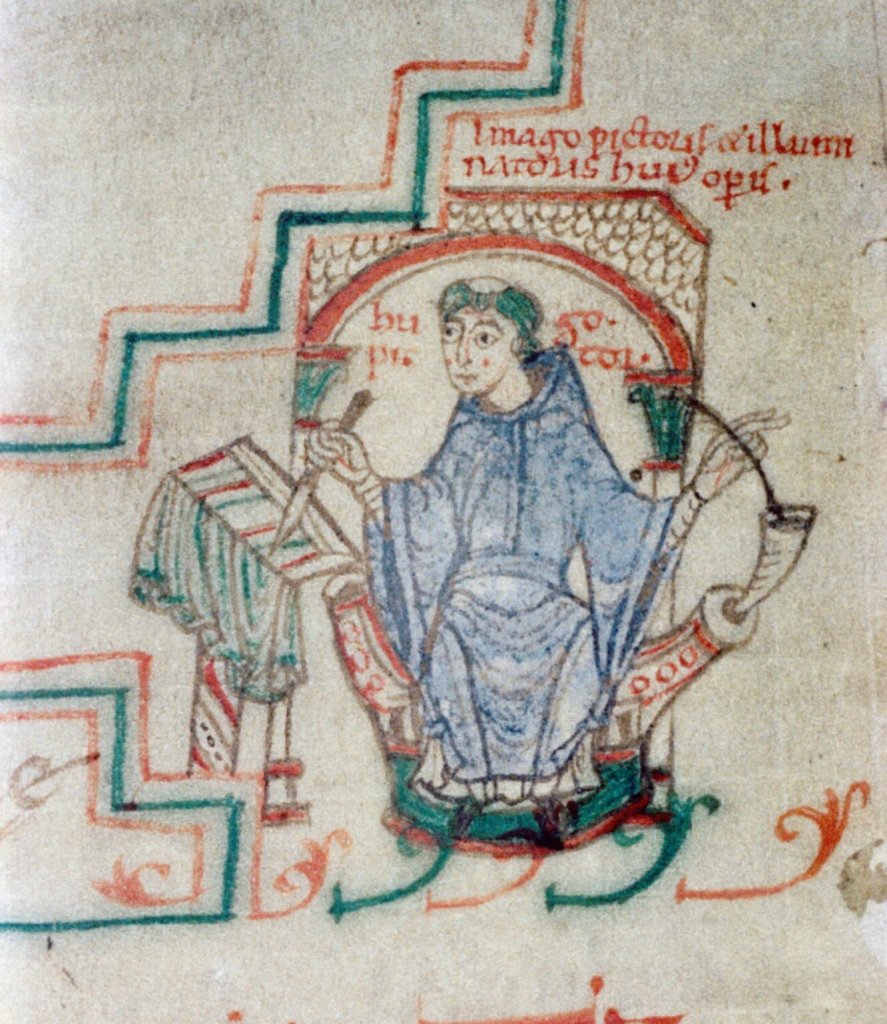 Imago pictoris & illumi
natoris hui' operis.
hu go.
pic tor.